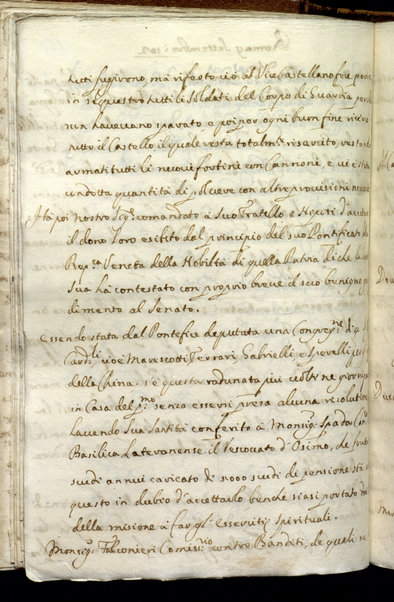 tutti fugirono, mà rifosto ciò al Vice Castellano fece porre
in sequestro tutti li Soldati del Corpo di Guardia perche
non havevano sparato, e poi por ogni buon fine
tutto il Castello, il quale resta totalmte riservito, restando
armati tutti li nuovi fortini con Cannone, e vè stata
condotta quantità di polvere con altre provisioni
Hà poi Nostro Sigre comandato à Suo Fratello, e Nepoti d'accettare
il dono loro esibito dal principio del suo Pontificato dalla
Repca Veneta della Nobiltà di quella Patria di che la
Sua hà contestato con proprio breve il suo benigno
mento al Senato.
Essendo stata dal Pontefice deputata una Congregne di 4
Cardli cioè Marescotti, Ferrari, Gabrielli, e Sperelli
della China, s'è questa radunata più volte ne giorni
in Casa del pmo senza esservi presa alcuna resolutione
Havendo Sua Santità conferito à Monsigr Spada
Basilica Lateranense il Vescovato d'Osimo, che frutta
scudi annui caricato di 3000 scudi di pensione stà
questo in dubio d'accettarlo benche siasi portato
della misione à far gl'esserciti spirituali.
Monsigr Falconieri Comissrio contro Banditi, de quali ne